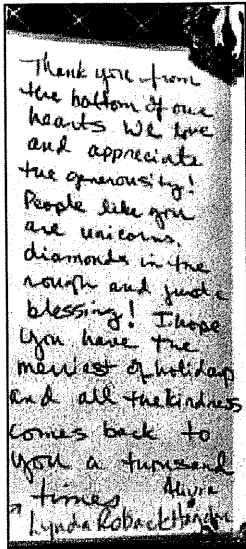 Thank you from
the bottom of our
hearts We love
and appreciate
the generosity!
People like you
are unicorns,
diamonds in the
rough and just a
blessing! I hope
you have the
merriest of holidays
and all the kindness
comes back to
you a tunsand
times
Lynda Roback